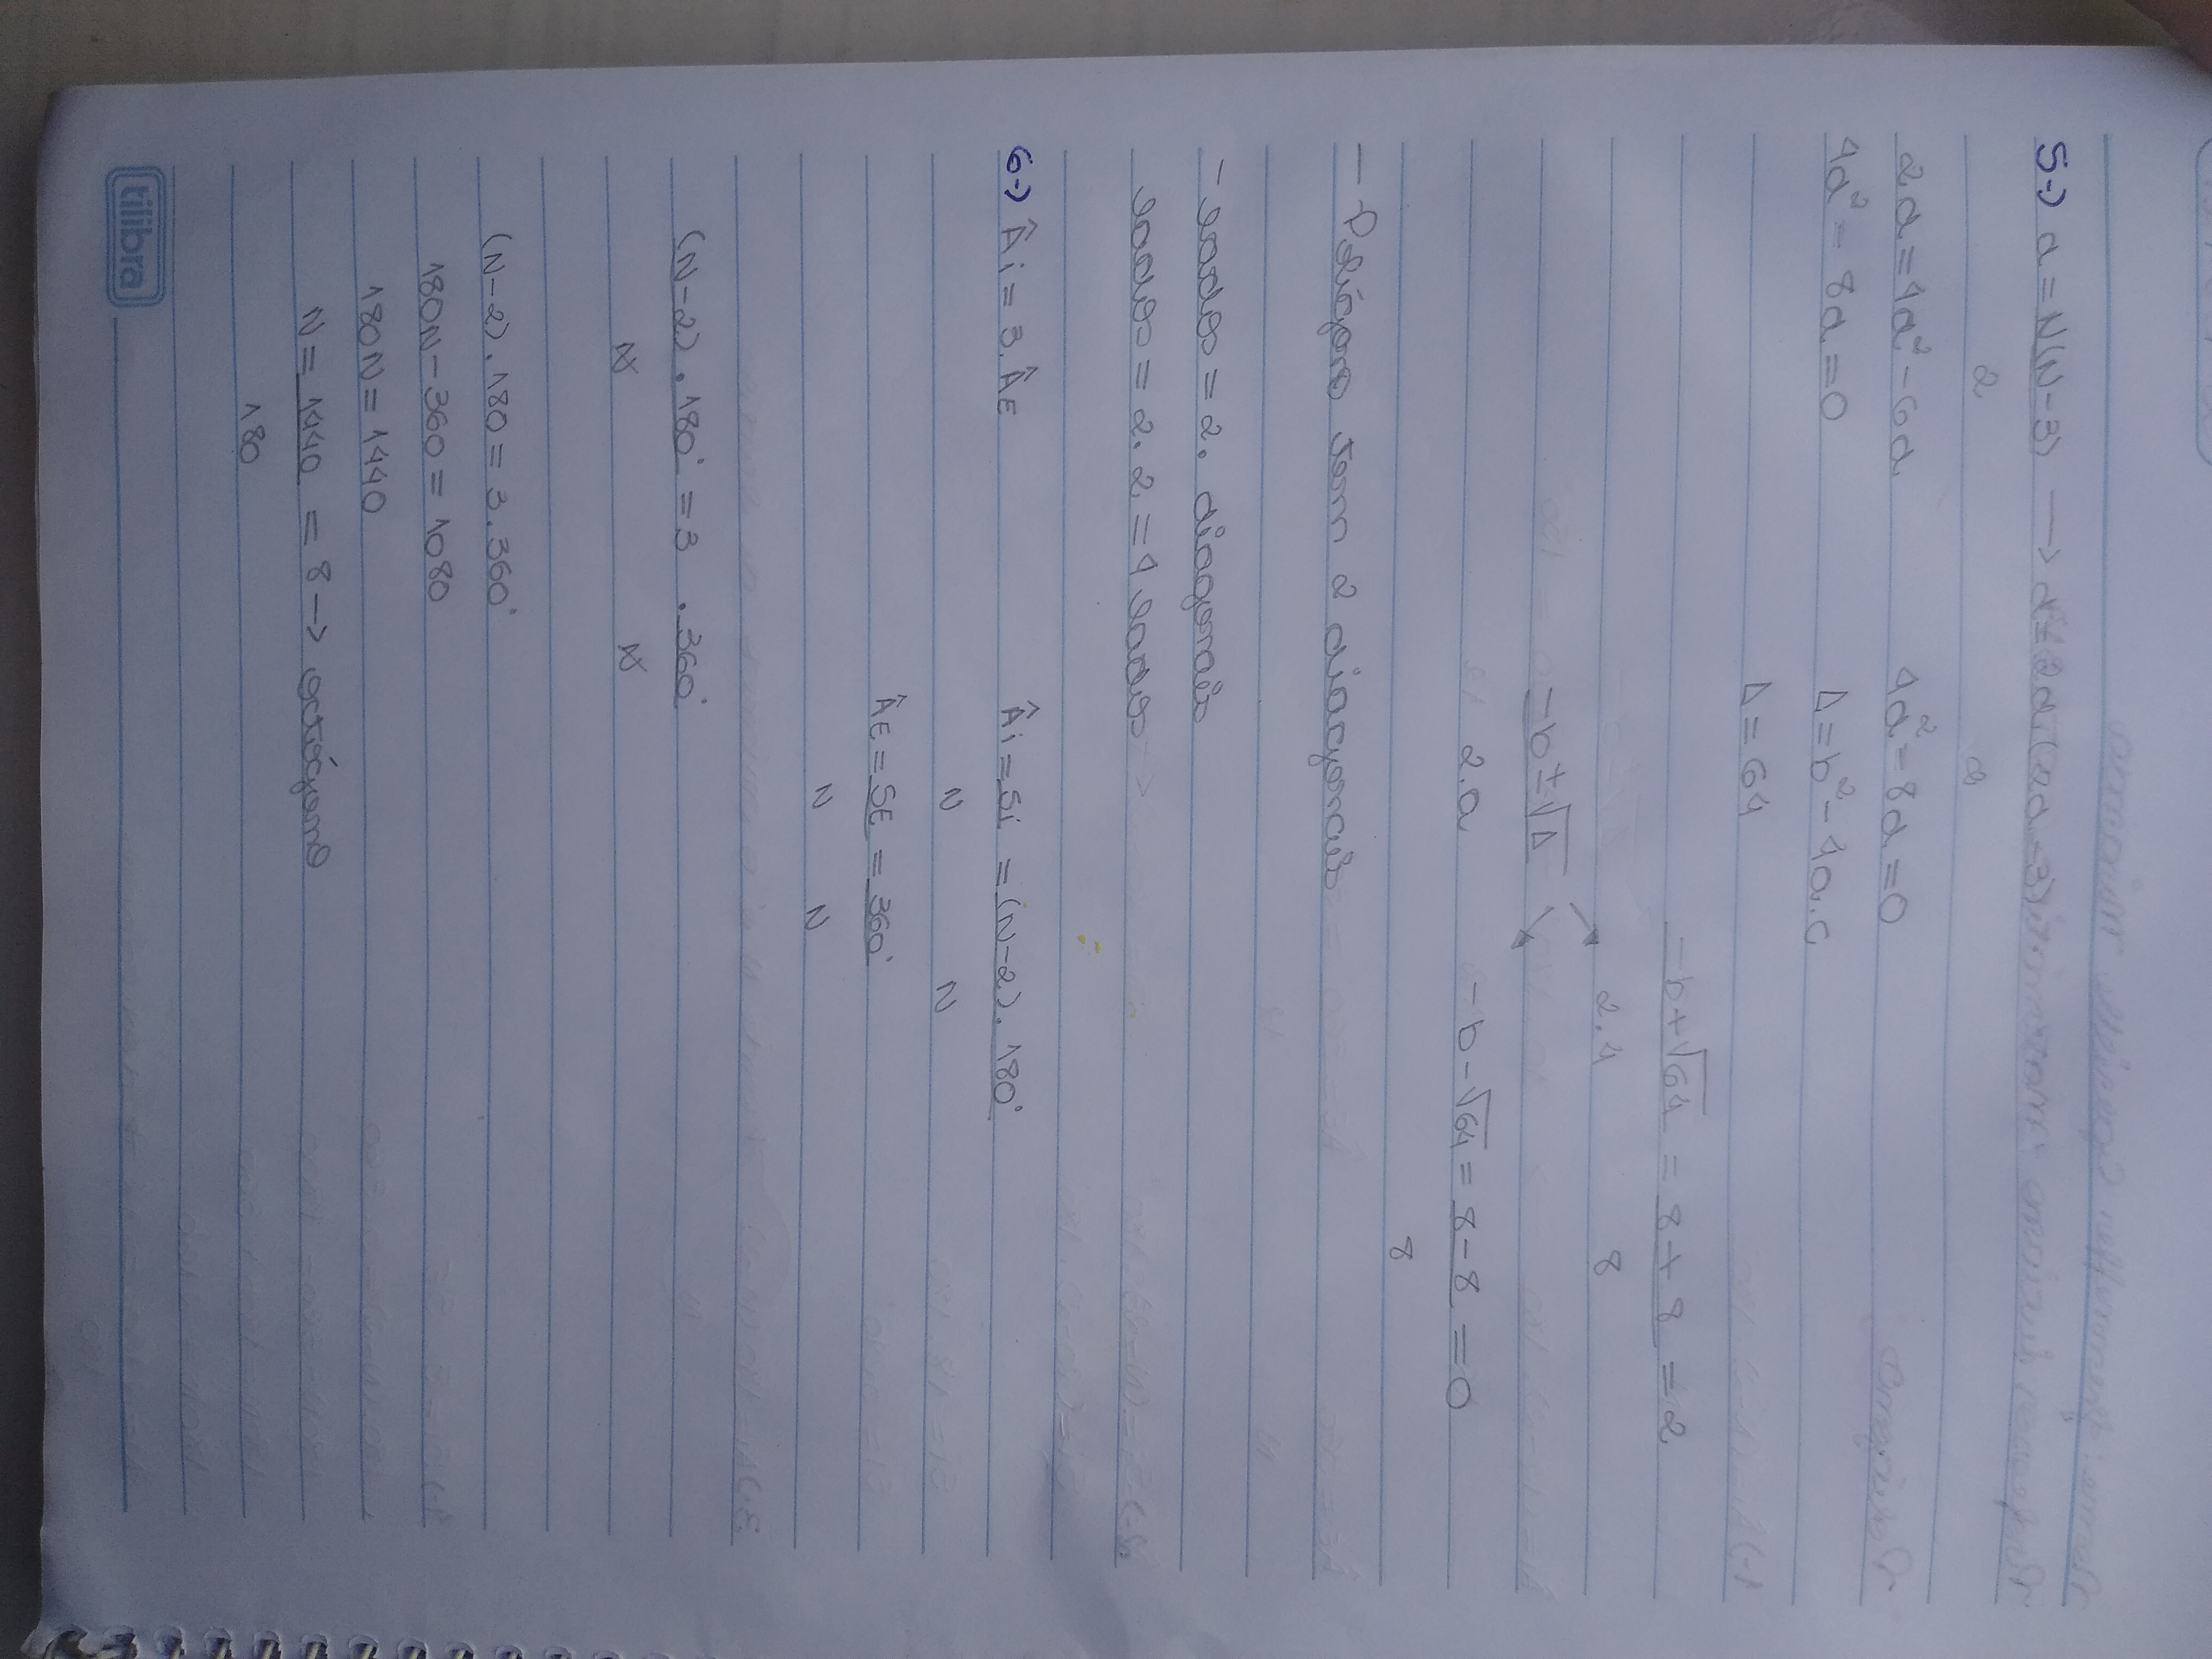 5-) d = N(N-3) → d = 2d.(2d-3)
2 2
2d = 4d² - 6d 4d² - 8d = 0
4d² - 8d = 0 Δ = b² - 4a.c
Δ = 64
-b + √64 = 8 + 8 = 2
2.4 8
-b ± √Δ
2.a -b - √64 = 8 - 8 = 0
8
- Polígono tem 2 diagonais
- lados = 2. diagonais
lados = 2.2 = 4 lados
6-) Âi = 3.ÂE Âi = Si = (N-2).180°
N N
ÂE = SE = 360°
N N
(N-2).180° = 3 .360°
N N
(N-2).180 = 3.360°
180N - 360 = 1080
180N = 1440
N = 1440 = 8 → octógono
180
tilibra